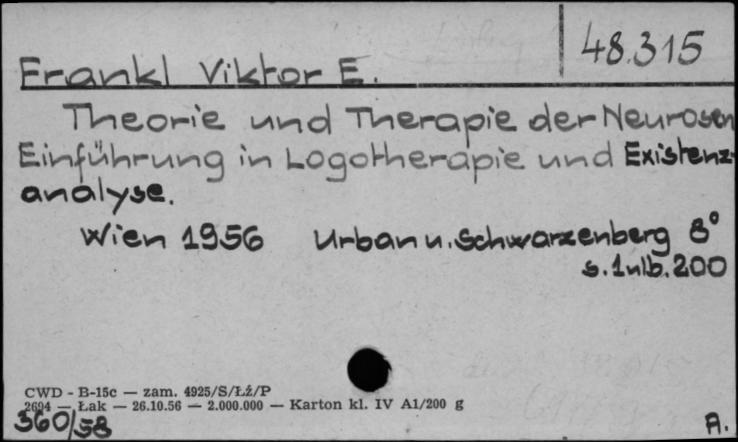 48.315
Frankl Viktor E.
Theorie und Therapie der Neurosen
Einführung in Logotherapie und Existenz-
analyse.
Wien 1956 Urban u. Schwarzenberg 8°
s. 1nlb. 200
CWD - B-15c — zam. 4925/S/Łź/P
2694 — Łak — 26.10.56 — 2.000.000 — Karton kl. IV A1/200 g
360/58
A.